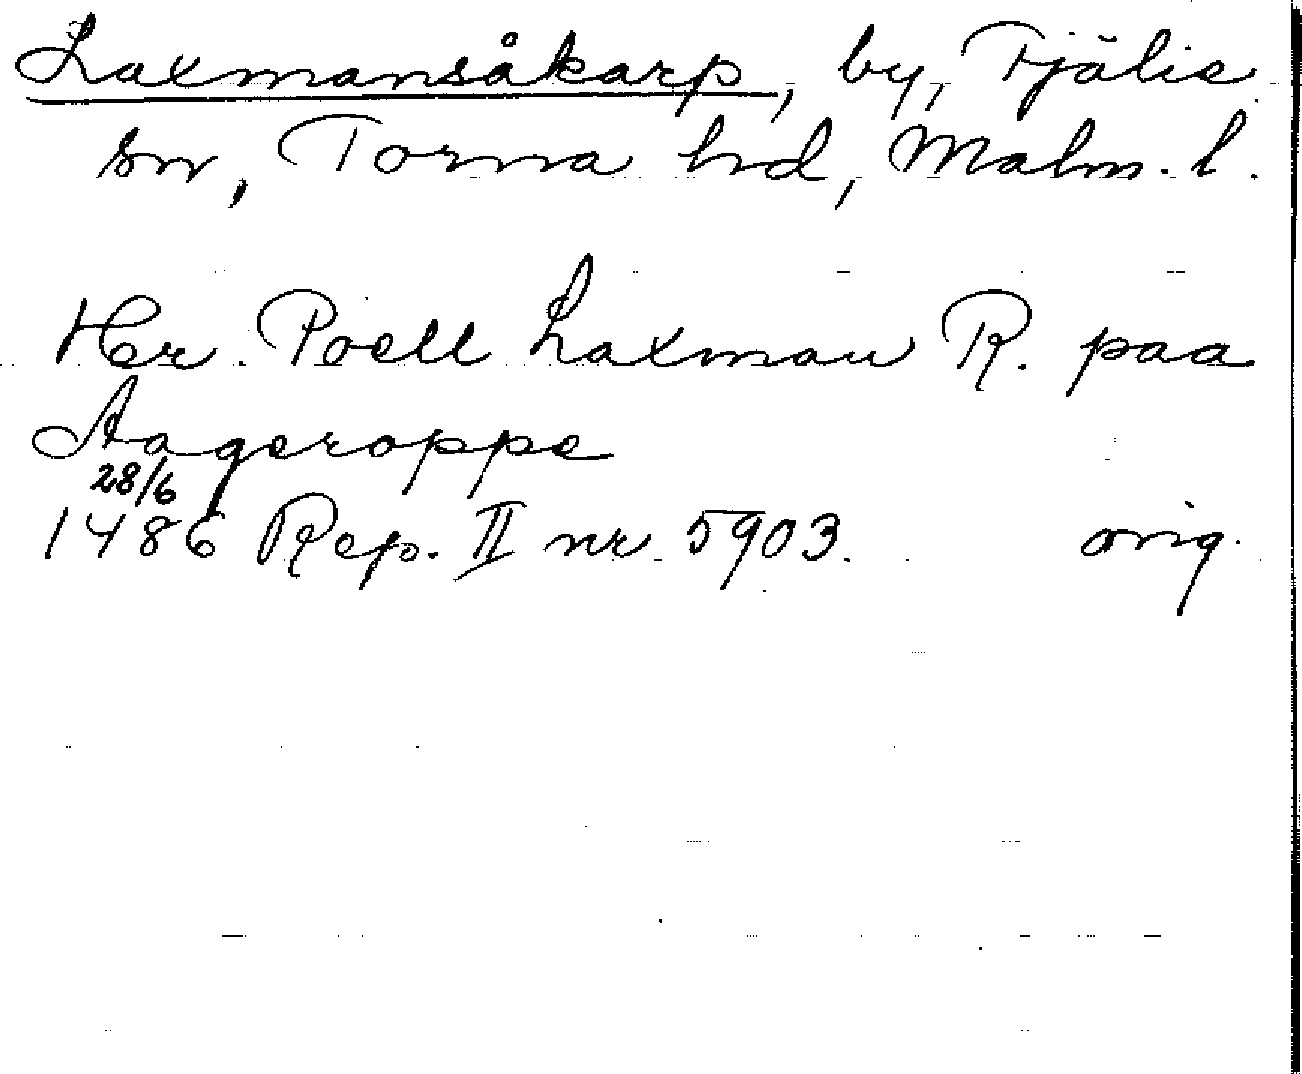 Laxmansåkarp, by, Fjälie
sn, Torna hd, Malm. l.
Her Poell Laxman R. paa
Aageroppe
28/6
1486 Rep. II nr 5903. orig.